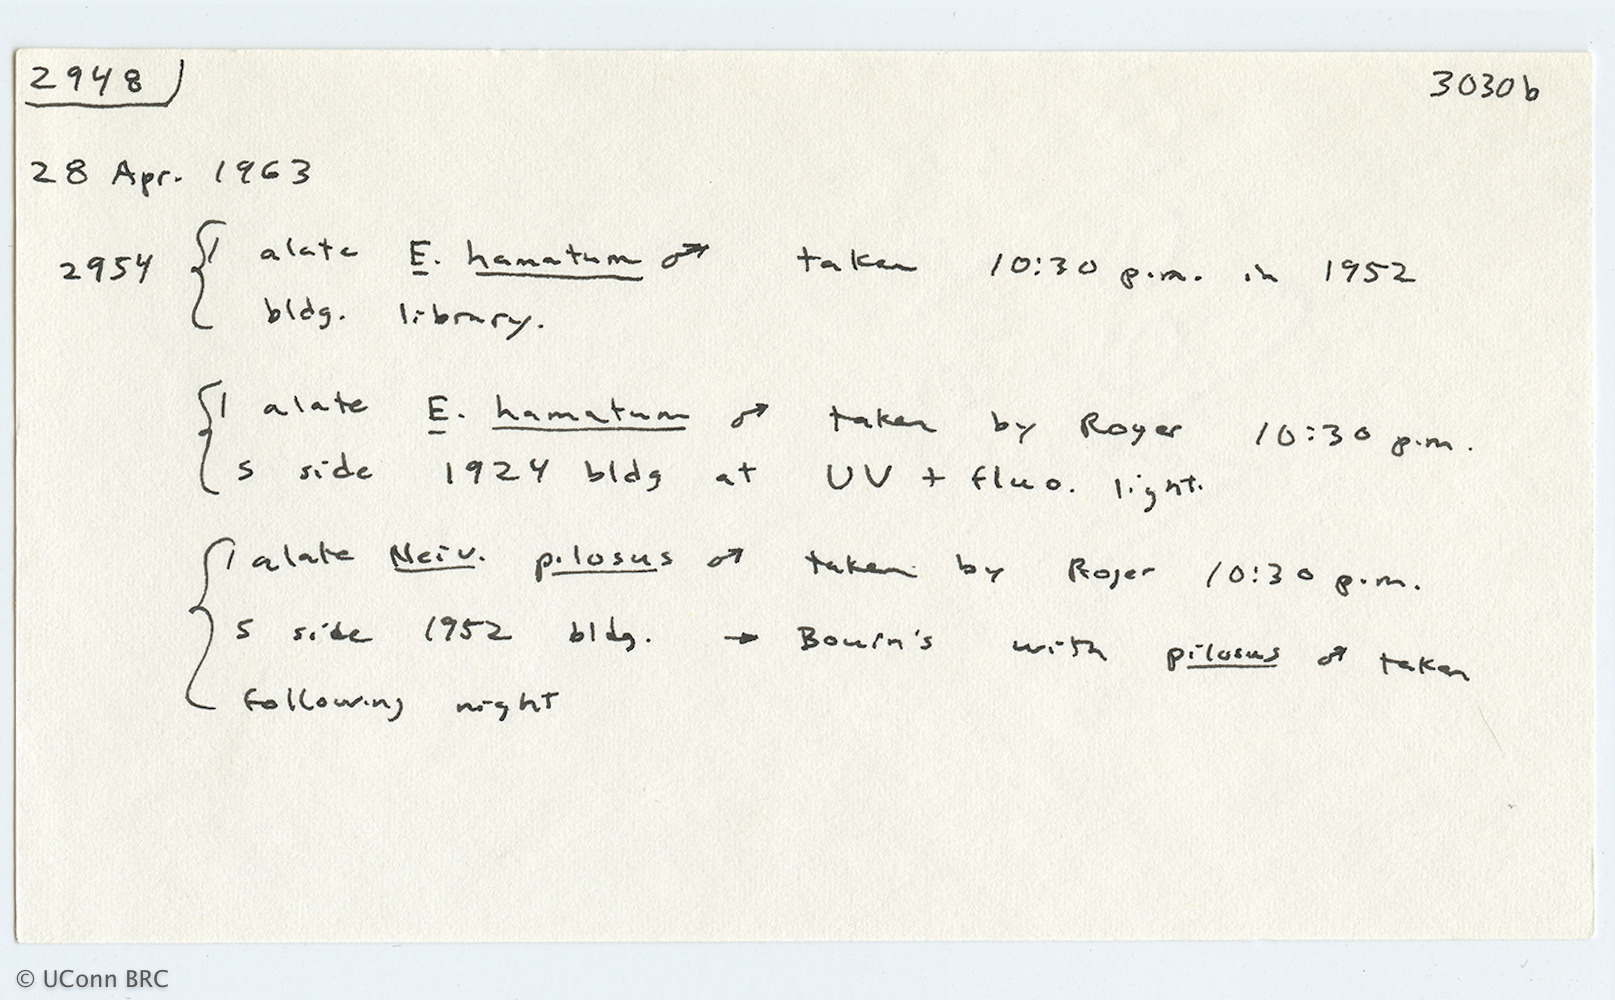 2948 3030b
28 Apr. 1963
2954 { 1 alate E. hamatum ♂ taken 10:30 p.m. in 1952
bldg. library.
{ 1 alate E. hamatum ♂ taken by Roger 10:30 p.m.
S side 1924 bldg at UV + fluo. light.
{ 1 alate Neiv. pilosus ♂ taken by Roger 10:30 p.m.
S side 1952 bldg. → Bouin's with pilosus ♂ taken
following night
© UConn BRC